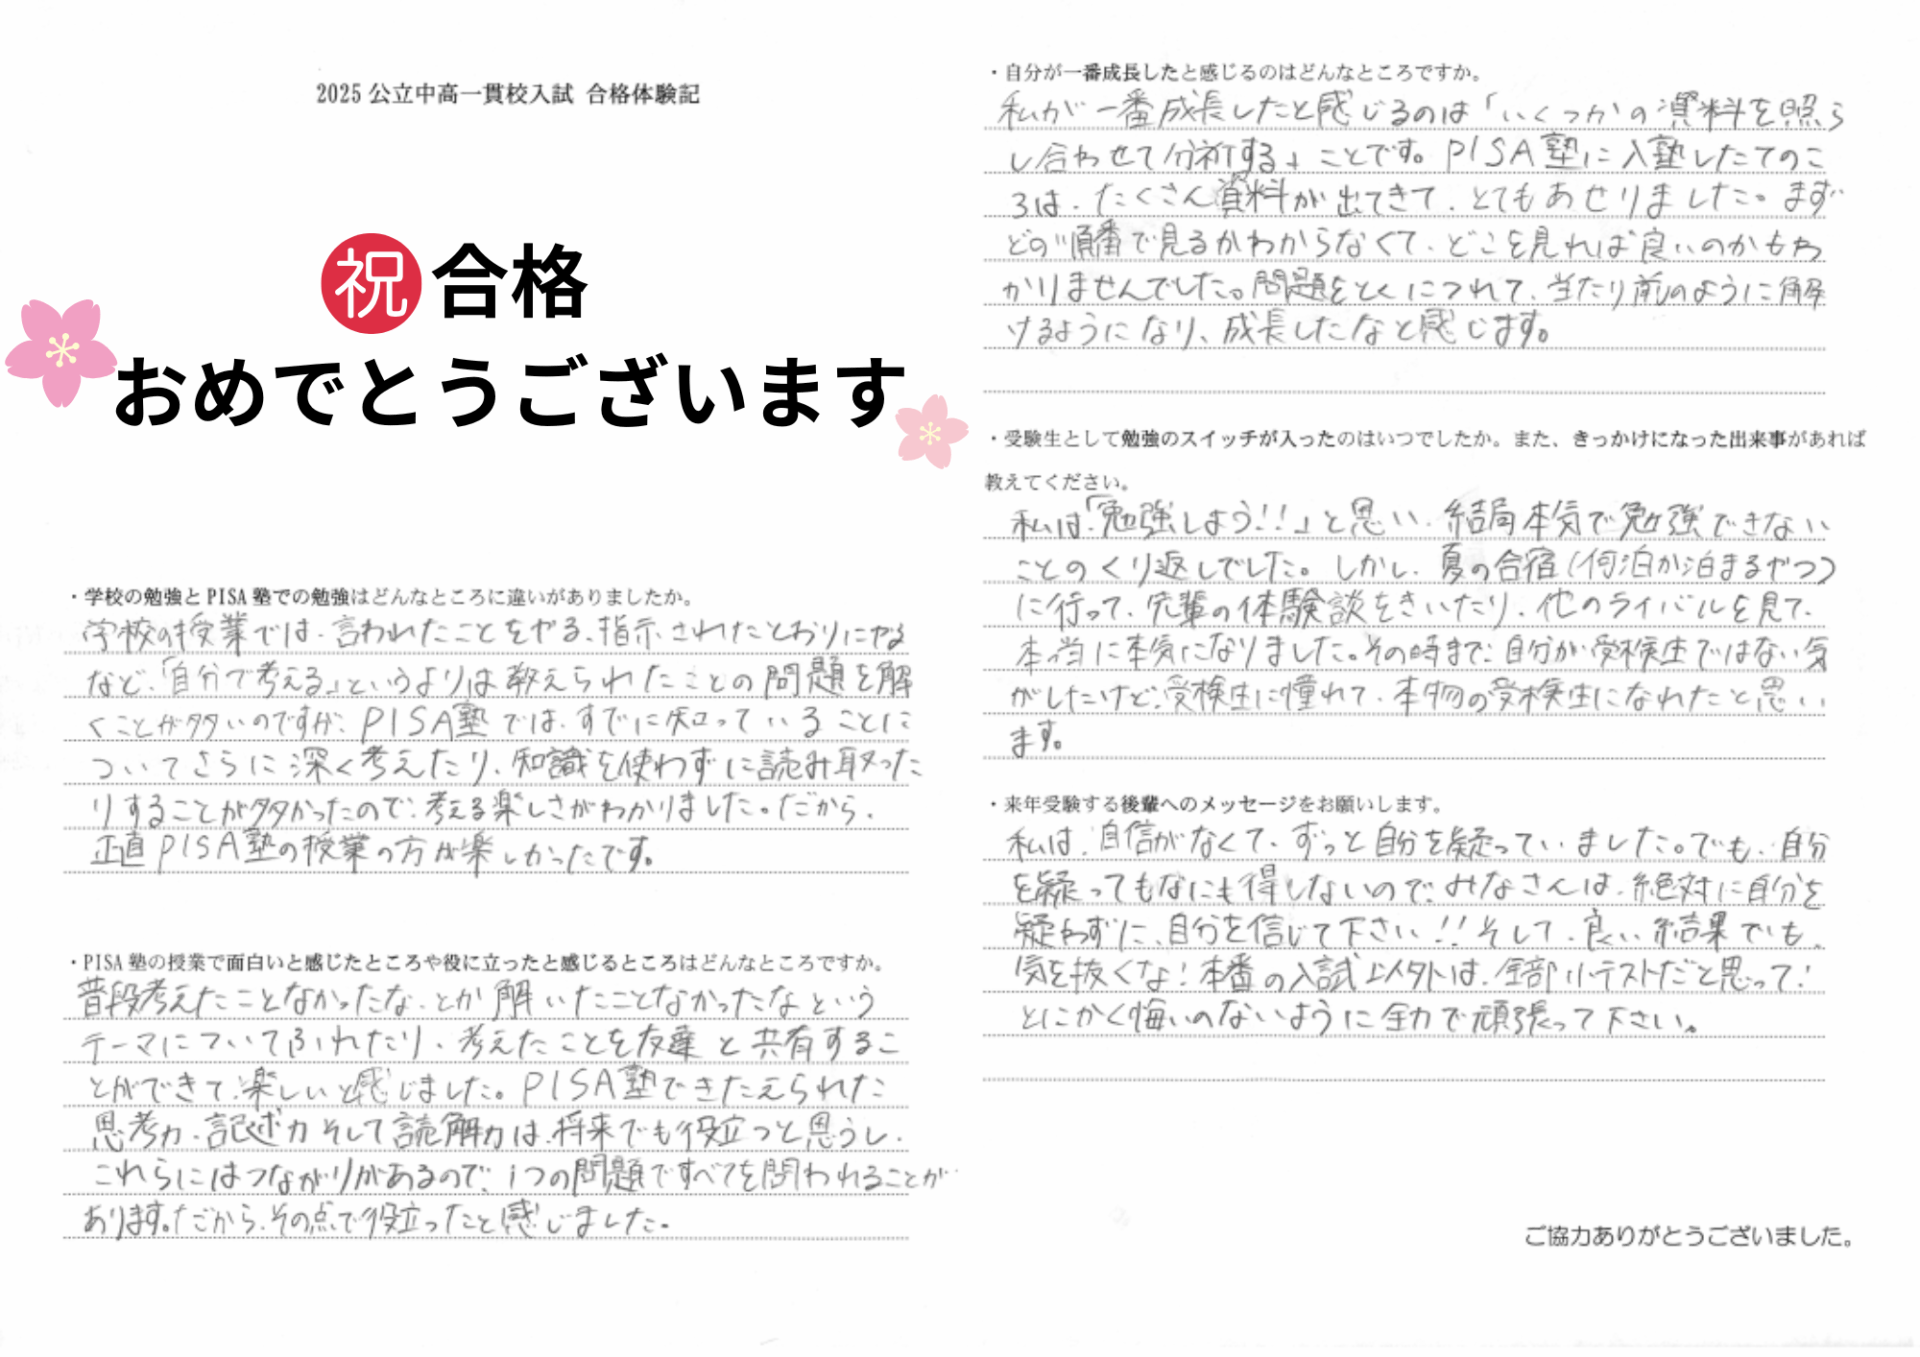 2025 公立中高一貫校入試 合格体験記
祝 合格
おめでとうございます
・学校の勉強と PISA 塾での勉強はどんなところに違いがありましたか。
学校の授業では、言われたことをやる、指示されたとおりにやる
など、「自分で考える」というよりは教えられたことの問題を解
くことが多いのですが、PISA塾では、すでに知っていることに
ついてさらに深く考えたり、知識を使わずに読み取った
りすることが多かったので、考える楽しさがわかりました。だから、
正直PISA塾の授業の方が楽しかったです。
・PISA 塾の授業で面白いと感じたところや役に立ったと感じるところはどんなところですか。
普段考えたことなかったな、とか解いたことなかったなという
テーマについてふれたり、考えたことを友達と共有するこ
とができて、楽しいと感じました。PISA塾できたえられた
思考力、記述力そして読解力は、将来でも役立つと思うし、
これらにはつながりがあるので、1つの問題ですべてを問われることが
あります。だから、その点で役立ったと感じました。
・自分が一番成長したと感じるのはどんなところですか。
私が一番成長したと感じるのは「いくつかの資料を照ら
し合わせて分析する」ことです。PISA塾に入塾したてのこ
ろは、たくさん資料が出てきて、とてもあせりました。まず
どの順番で見るかわからなくて、どこを見れば良いのかもわ
かりませんでした。問題をとくにつれて、当たり前のように解
けるようになり、成長したなと感じます。
・受験生として勉強のスイッチが入ったのはいつでしたか。また、きっかけになった出来事があれば
教えてください。
私は「勉強しよう!!」と思い、結局本気で勉強できない
ことのくり返しでした。しかし、夏の合宿(何泊か泊まるやつ)
に行って、先輩の体験談をきいたり、他のライバルを見て、
本当に本気になりました。その時まで、自分が受検生ではない気
がしたけど、受検生に憧れて、本物の受検生になれたと思い
ます。
・来年受験する後輩へのメッセージをお願いします。
私は、自信がなくて、ずっと自分を疑っていました。でも、自分
を疑ってもなにも得しないので、みなさんは、絶対に自分を
疑わずに、自分を信じて下さい!!そして、良い結果でも、
気を抜くな!本番の入試以外は、全部小テストだと思って!
とにかく悔いのないように全力で頑張って下さい。
ご協力ありがとうございました。